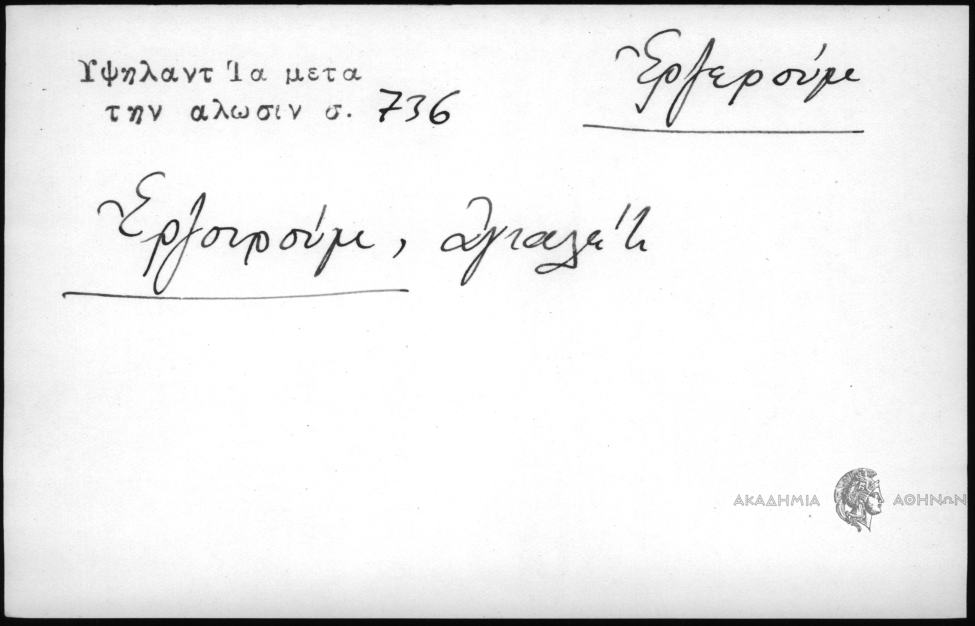 Υψηλαντ Τα μετα
την αλωσιν σ. 736
Ἐρζερούμ
Ἐρζουρούμ,
ΑΚΑΔΗΜΙΑ ΑΘΗΝΩΝ